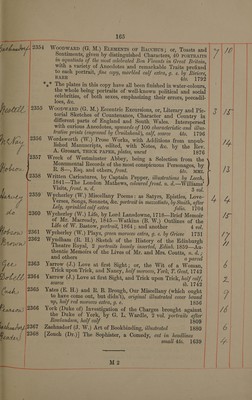 165
2354 WOODWARD (G. M.) ELEMENTS OF BACCHUS; or, Toasts and
Sentiments, given by distinguished Characters, 40 PORTRAITS
in aquatinta of the most celebrated Bon Vivants in Great Britain,
with a variety of Anecdotes and remarkable Traits prefixed
to each portrait, fine copy, marbled calf extra, g. e. by Riviere,
RARE 4to. 1792
*** The plates in this copy have all been finished in water-colours,
the whole being portraits of well-known political and social
celebrities, of both sexes, emphasizing their errors, peccadil-
loes, &c.
2355 WOODWARD (G. M.) Eccentric Excursions, or, Literary and Pic-
torial Sketches of Countenance, Character and Country in
different parts of England and South Wales. Interspersed
with curious Anecdotes, upwards of 100 characteristic and illus-
trative prints (engraved by Cruikshank), calf, scarce 4to. 1796
2356 Wordsworth (W.) Prose Works, with Additions from unpub-
lished Manuscripts, edited, with Notes, &c. by the Rev.
A. Grosart, THICK PAPER, plates, uncut 3 vol. 1876
2357 Wreck of Westminster Abbey, being a Selection from the
Monumental Records of the most conspicuous Personages, by
R. S—, Esq. and others, front. sh. MMI.
2358 Written Caricatures, by Captain Pepper, illustrations by Leech,
1841—The London Mathews, coloured front. n. d.—Williams'
Visits, front. n. d. 3 vol.
2359 Wycherley (W.) Miscellany Poems: as Satyrs, Epistles, Love-
Verses, Songs, Sonnets, &c. portrait in mezzotinto, by Smith, after
Lely, sprinkled calf extra folio. 1704
2360 Wycherley (W.) Life, by Lord Lansdowne, 1719—Brief Memoir
of Mr. Macready, 1843—Watkins (R. W.) Outlines of the
Life of W. Burton, portrait, 1864; and another 4 vol.
2361 Wycherley (W.) Plays, green morocco extra, g. e. by Grieve 1731
2362 Wyndham (R. H.) Sketch of the History of the Edinburgh
Theatre Royal, 2 portraits handily inserted, Edinb. 1859—Au-
thentic Memoirs of the Lives of Mr. and Mrs. Coutts, n. d.;
and others a parcel
2363 Yarrow (J.) Love at first Sight; or, the Wit of a Woman,
Trick upon Trick, and Nancy, half morocco, York, T. Gent, 1742
2364 Yarrow (J.) Love at first Sight, and Trick upon Trick, half calf,
scarce ib. 1742
2365 Yates (E. H.) and R. B. Brough, Our Miscellany (which ought
to have come out, but didn't), original illustrated cover bound
up, half red morocco extra, g. e. 1856
2366 York (Duke of) Investigation of the Charges brought against
the Duke of York, by G. L. Wardle, 2 vol. portraits after
Rowlandson, half calf 1809
2367 Zaehnsdorf (J. W.) Art of Bookbinding, illustrated 1880
2368 [Zouch (Dr.)] The Sophister, a Comedy, cut in headlines
small 4to. 1639
M 2